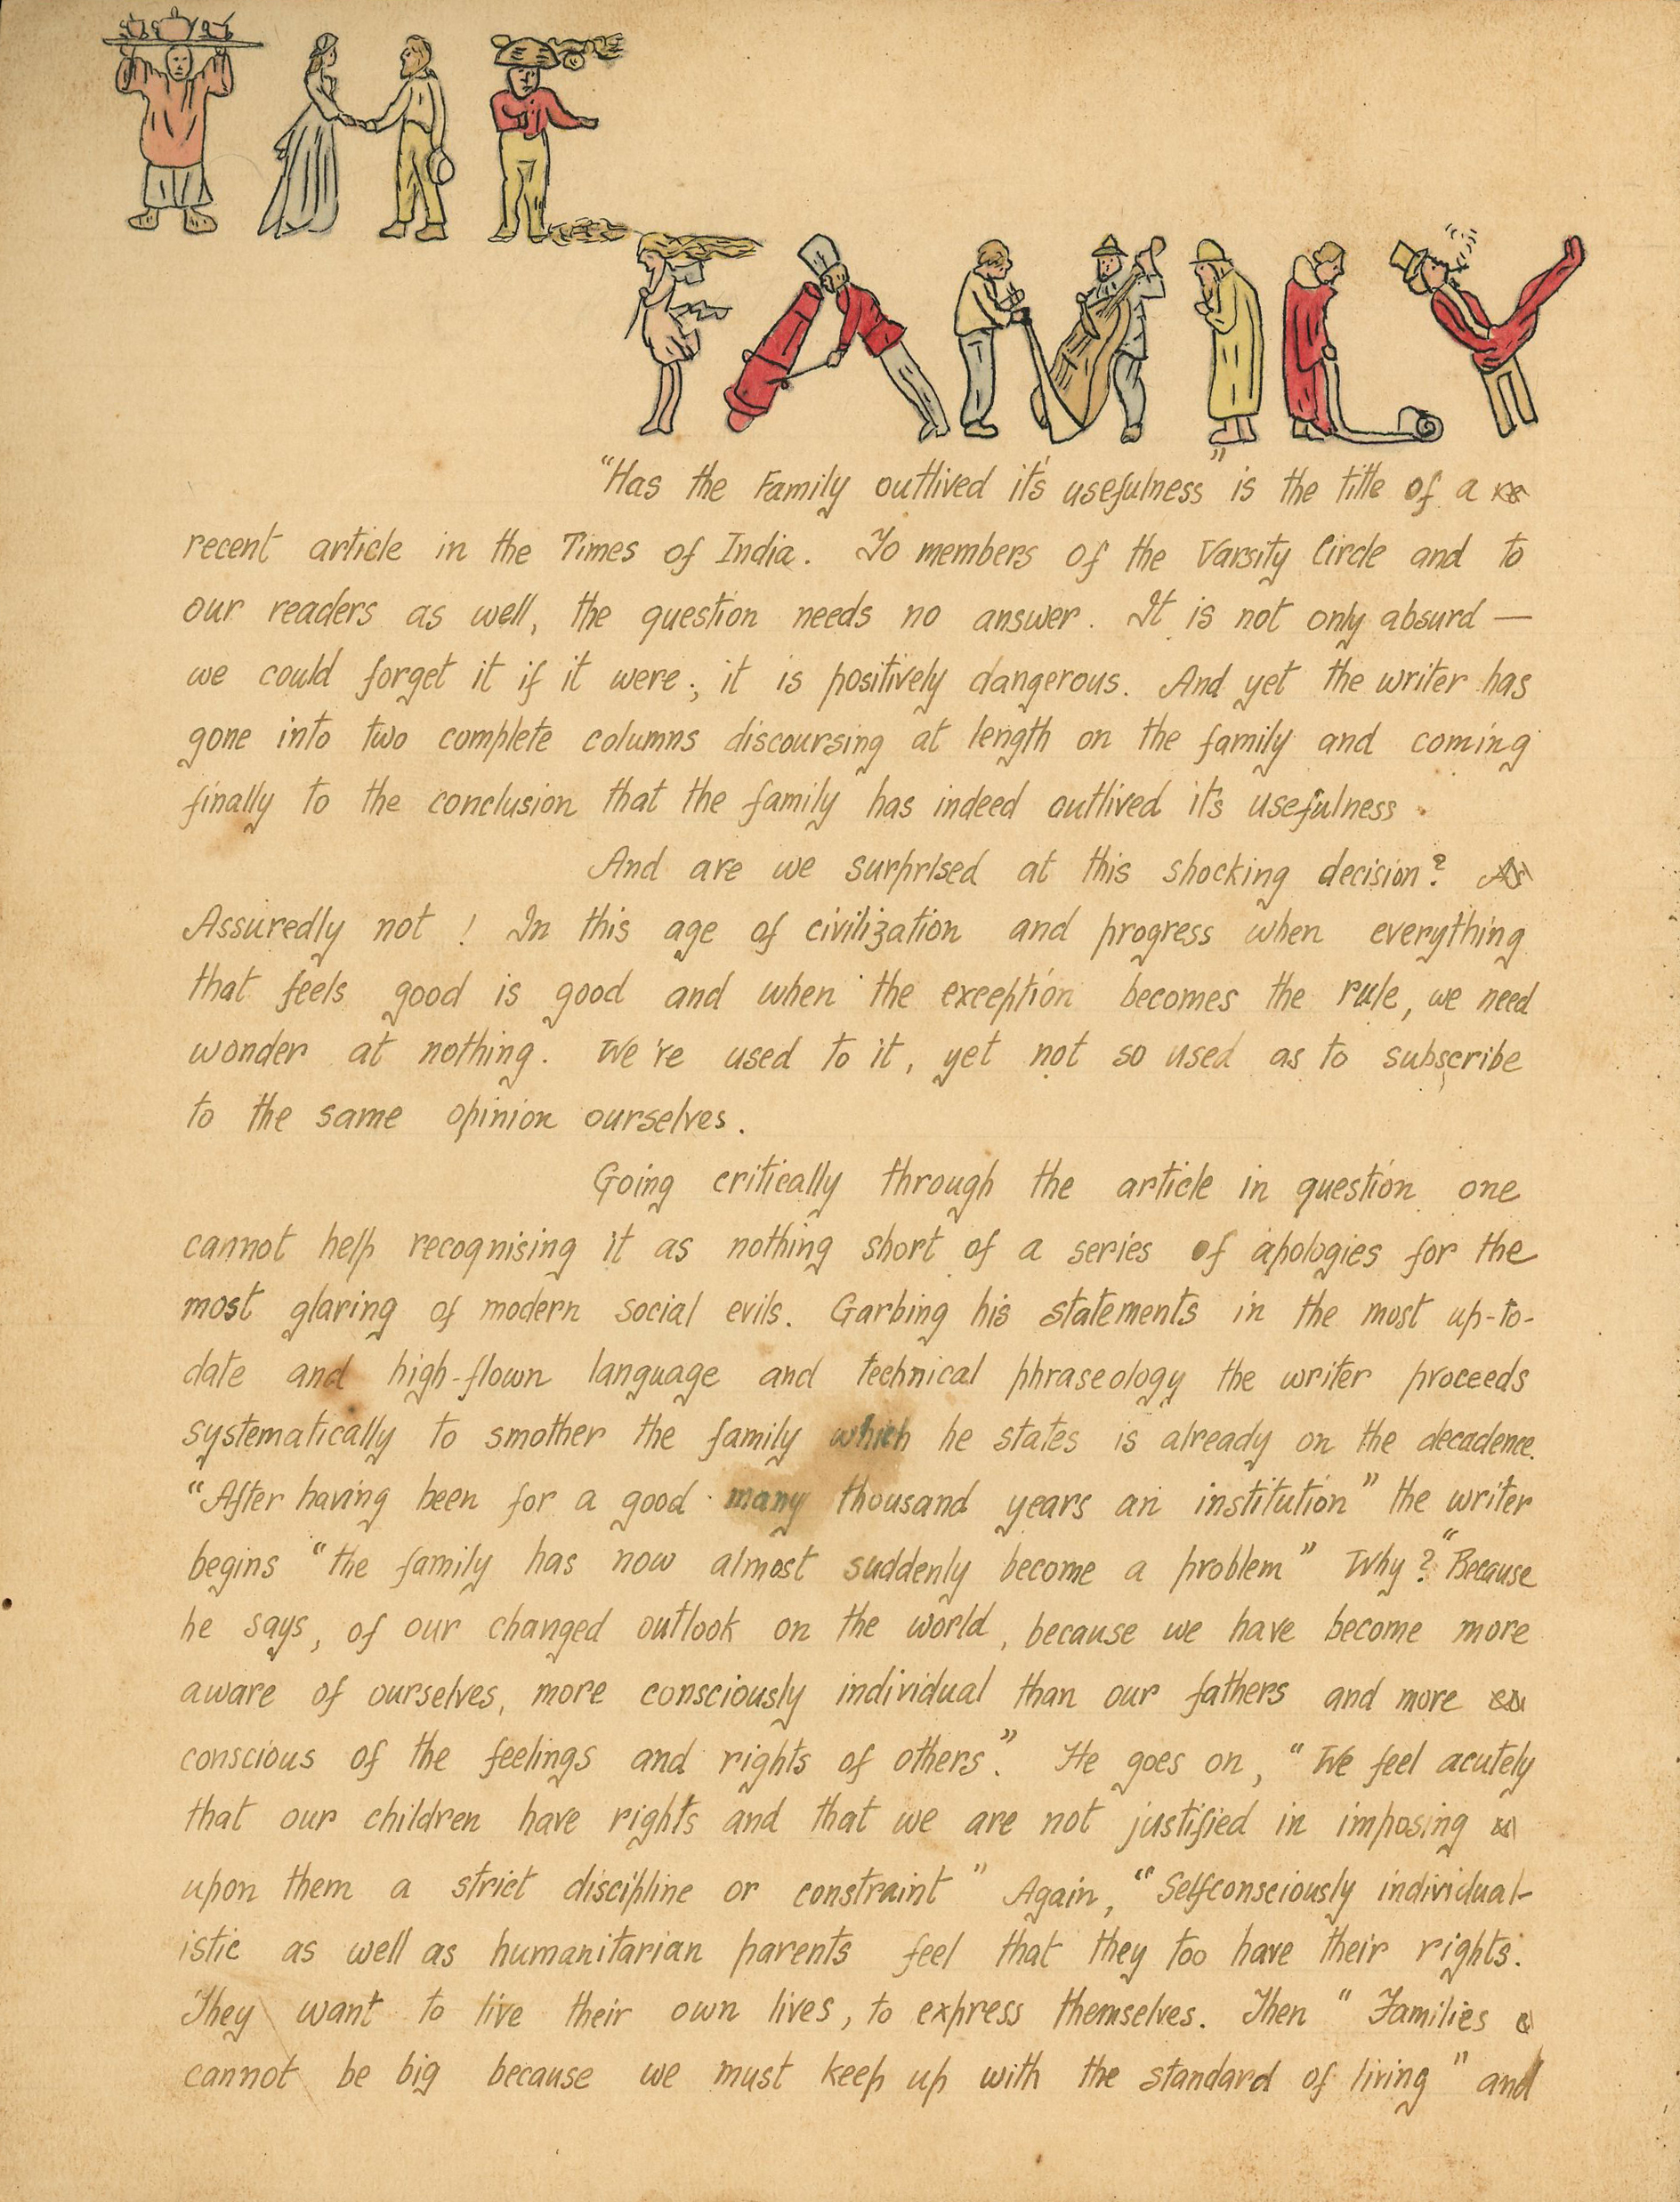 THE
FAMILY
"Has the Family outlived it's usefulness" is the title of a
recent article in the Times of India. To members of the Varsity Circle and to
our readers as well, the question needs no answer. It is not only absurd —
we could forget it if it were; it is positively dangerous. And yet the writer has
gone into two complete columns discoursing at length on the family and coming
finally to the conclusion that the family has indeed outlived it's usefulness.
And are we surprised at this shocking decision?
Assuredly not! In this age of civilization and progress when everything
that feels good is good and when the exception becomes the rule, we need
wonder at nothing. We're used to it, yet not so used as to subscribe
to the same opinion ourselves.
Going critically through the article in question one
cannot help recognising it as nothing short of a series of apologies for the
most glaring of modern social evils. Garbing his statements in the most up-to-
date and high-flown language and technical phraseology the writer proceeds
systematically to smother the family which he states is already on the decadence.
"After having been for a good many thousand years an institution" the writer
begins "the family has now almost suddenly become a problem" Why? "Because
he says, of our changed outlook on the world, because we have become more
aware of ourselves, more consciously individual than our fathers and more
conscious of the feelings and rights of others". He goes on, "We feel acutely
that our children have rights and that we are not justified in imposing
upon them a strict discipline or constraint" Again, "Selfconsciously individual-
istic as well as humanitarian parents feel that they too have their rights.
They want to live their own lives, to express themselves. Then "Families
cannot be big because we must keep up with the standard of living" and